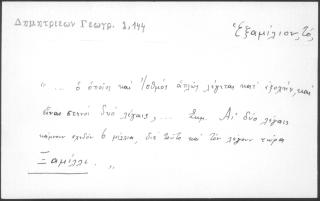 Δημητριέων Γεωγρ. 2,144
Ἑξαμίλιον, τό
"... ὁ ὁποῖος καὶ Ἰσθμός ἁπλῶς λέγεται κατ' ἐξοχήν, καὶ
εἶναι στενοὶ δυό λέγαις, ... Σημ. Αἱ δύο λέγαις
κάμνουν σχεδὸν 6 μίλλια, διὰ τοῦτο καὶ τὸν λέγουν τώρα
Ξαμίλλι. "